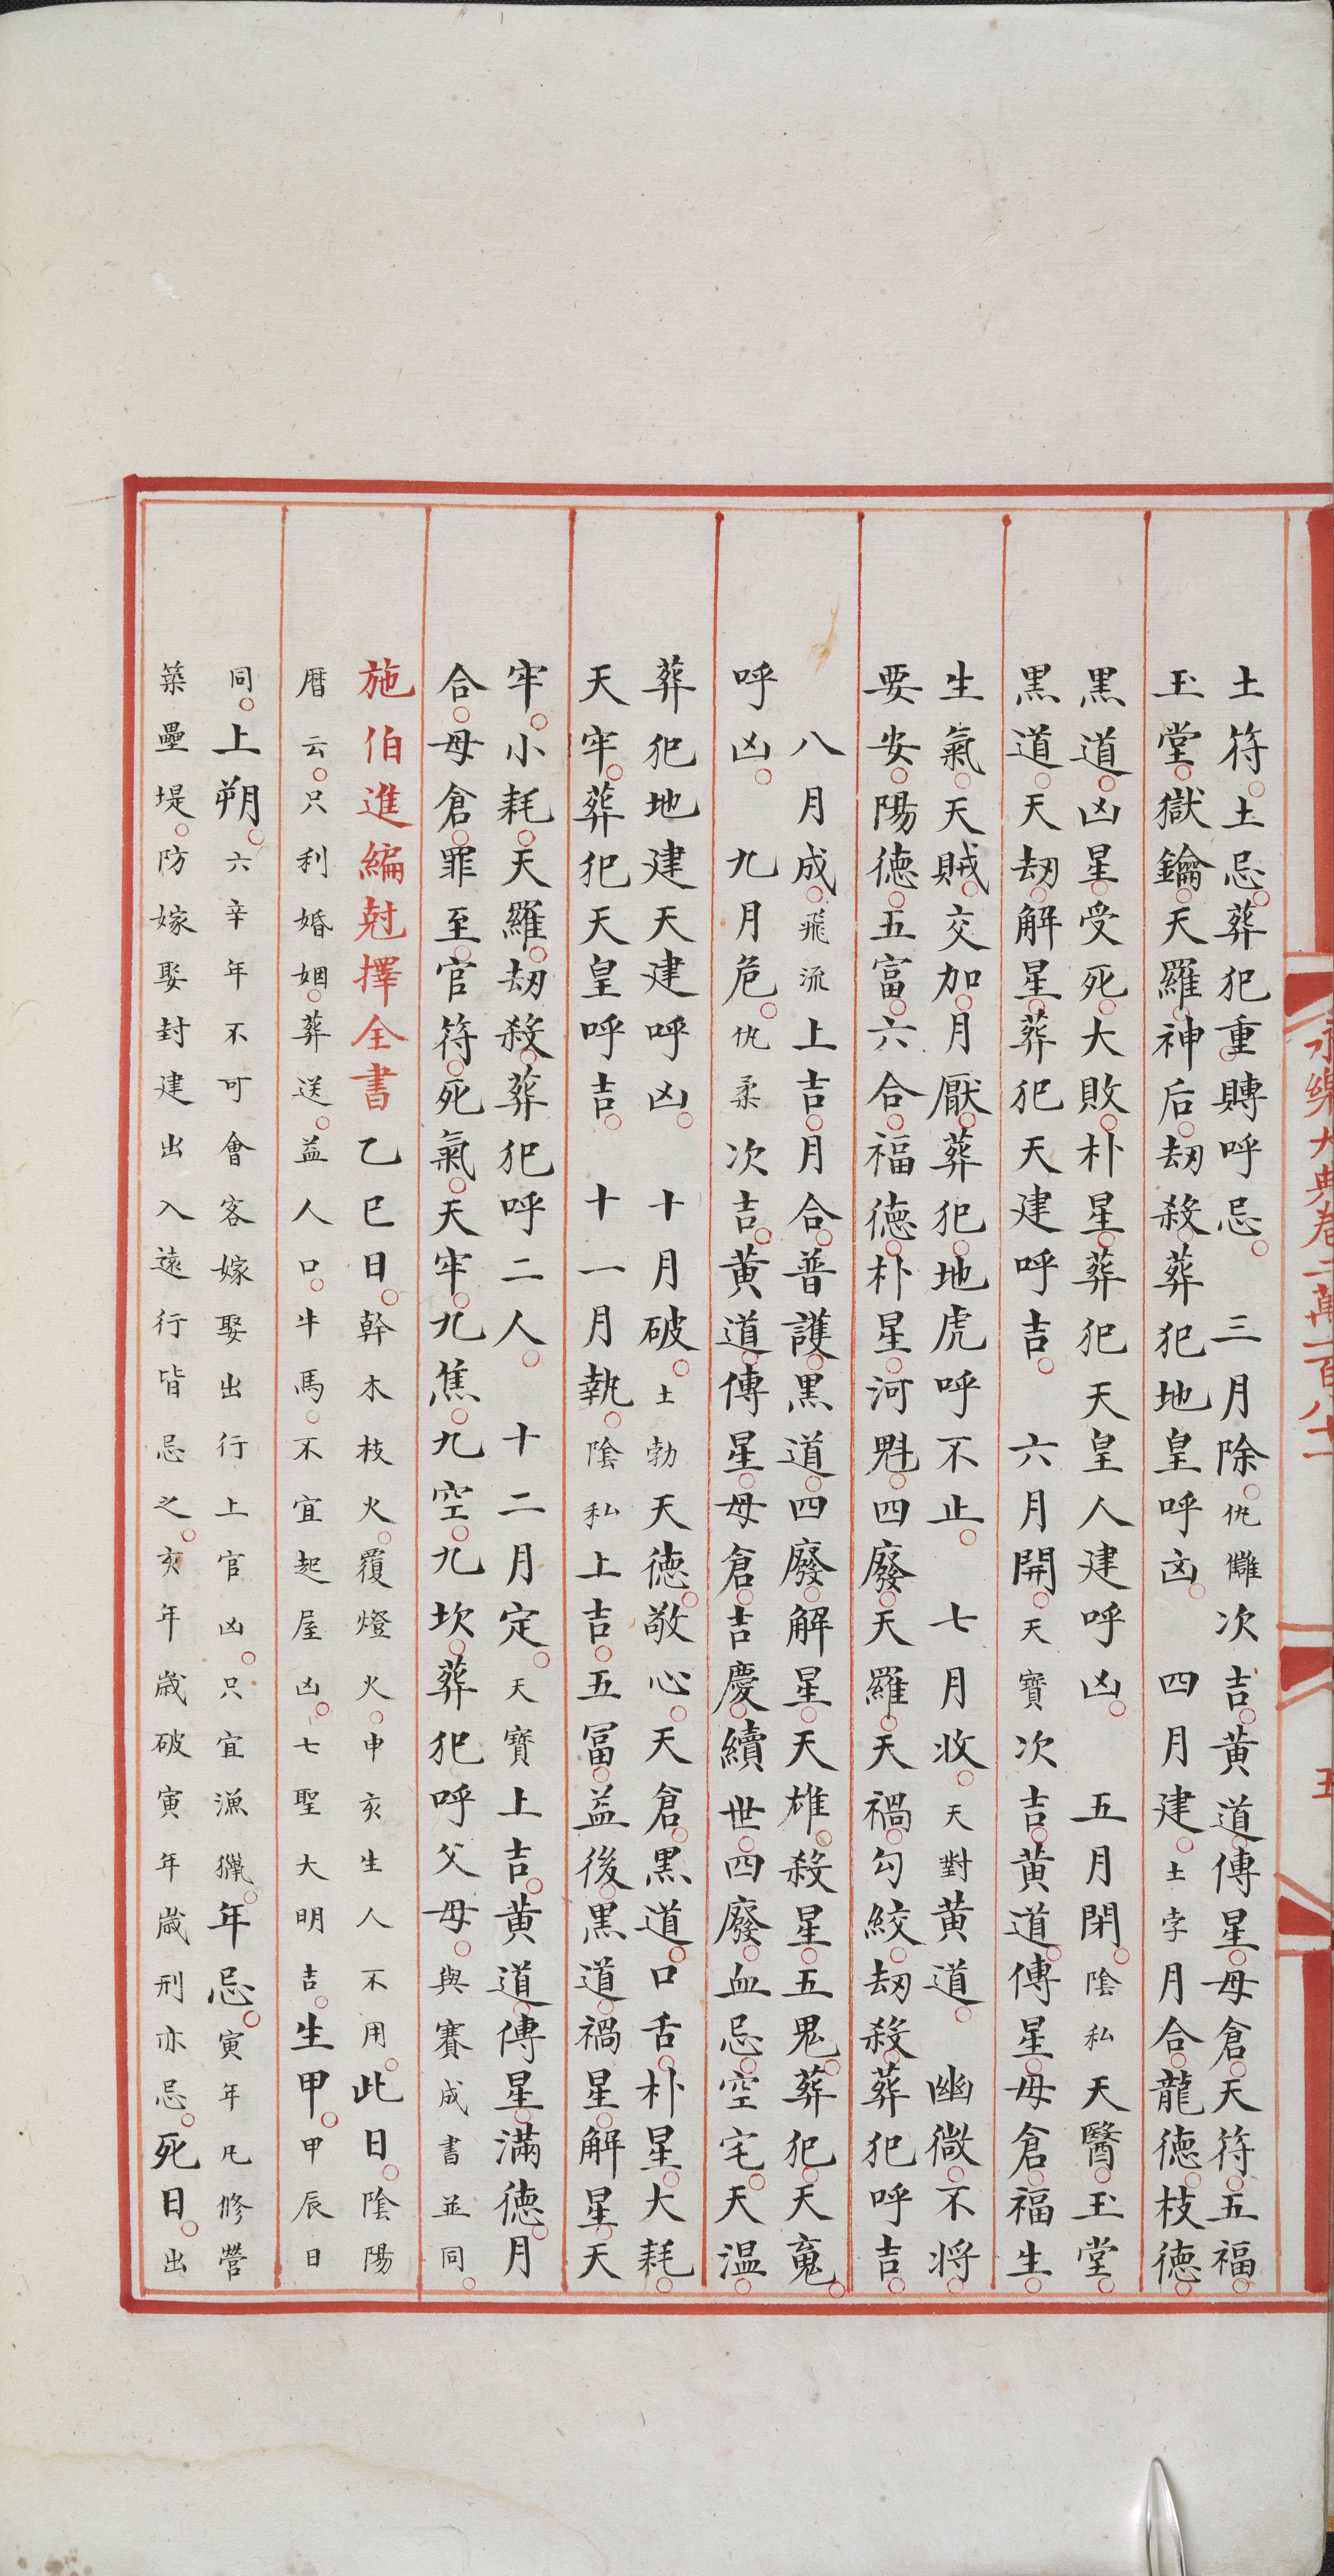 永樂大典卷二萬一百八十一
五
土符○土忌○葬犯重○轉呼忌○　三月除○仇讎次吉○黃道○傳星○母倉○天符○五福○
玉堂○獄鑰○天羅○神后○劫殺○葬犯地皇呼凶○　四月建○土孛月合○龍德○枝德○
黑道○凶星○受死○大敗○朴星○葬犯天皇人建呼凶○　五月閉○陰私天醫○玉堂○
黑道○天劫○解星○葬犯天建呼吉○　六月開○天寶次吉○黃道○傳星○母倉○福生○
生氣○天賊○交加○月厭○葬犯○地虎呼不止○　七月收○天對黃道○　幽微○不將○
要安○陽德○五富○六合○福德○朴星○河魁○四廢○天羅○天禍○勾絞○劫殺○葬犯呼吉○
八月成○飛流上吉○月合○普護○黑道○四廢○解星○天雄○殺星○五鬼○葬犯○天䰟○
呼凶○　九月危○仇柔次吉○黃道○傳星○母倉○吉慶○續世○四廢○血忌○空宅○天温○
葬犯地建天建呼凶○　十月破○土勃天德○敬心○天倉○黑道○口舌○朴星○大耗○
天牢○葬犯天皇呼吉○　十一月執○陰私上吉○五冨○益後○黑道○禍星○解星○天
牢○小耗○天羅○劫殺○葬犯呼二人○　十二月定○天寶上吉○黃道○傳星○滿德○月
合○母倉○罪至○官符○死氣○天牢○九焦○九空○九坎○葬犯呼父母○與賽成書並同○
施伯進編尅擇全書乙巳日○幹木枝火○覆燈火○申亥生人不用○此日○陰陽
曆云○只利婚姻○葬送○益人口○牛馬○不宜起屋凶○七聖大明吉○生甲○甲辰日
同○上朔○六辛年不可會客嫁娶出行上官凶○只宜漁獵○年忌○寅年凡修營
築壘堤○防嫁娶封建出入遠行皆忌之○亥年歲破寅年歲刑亦忌○死日○出